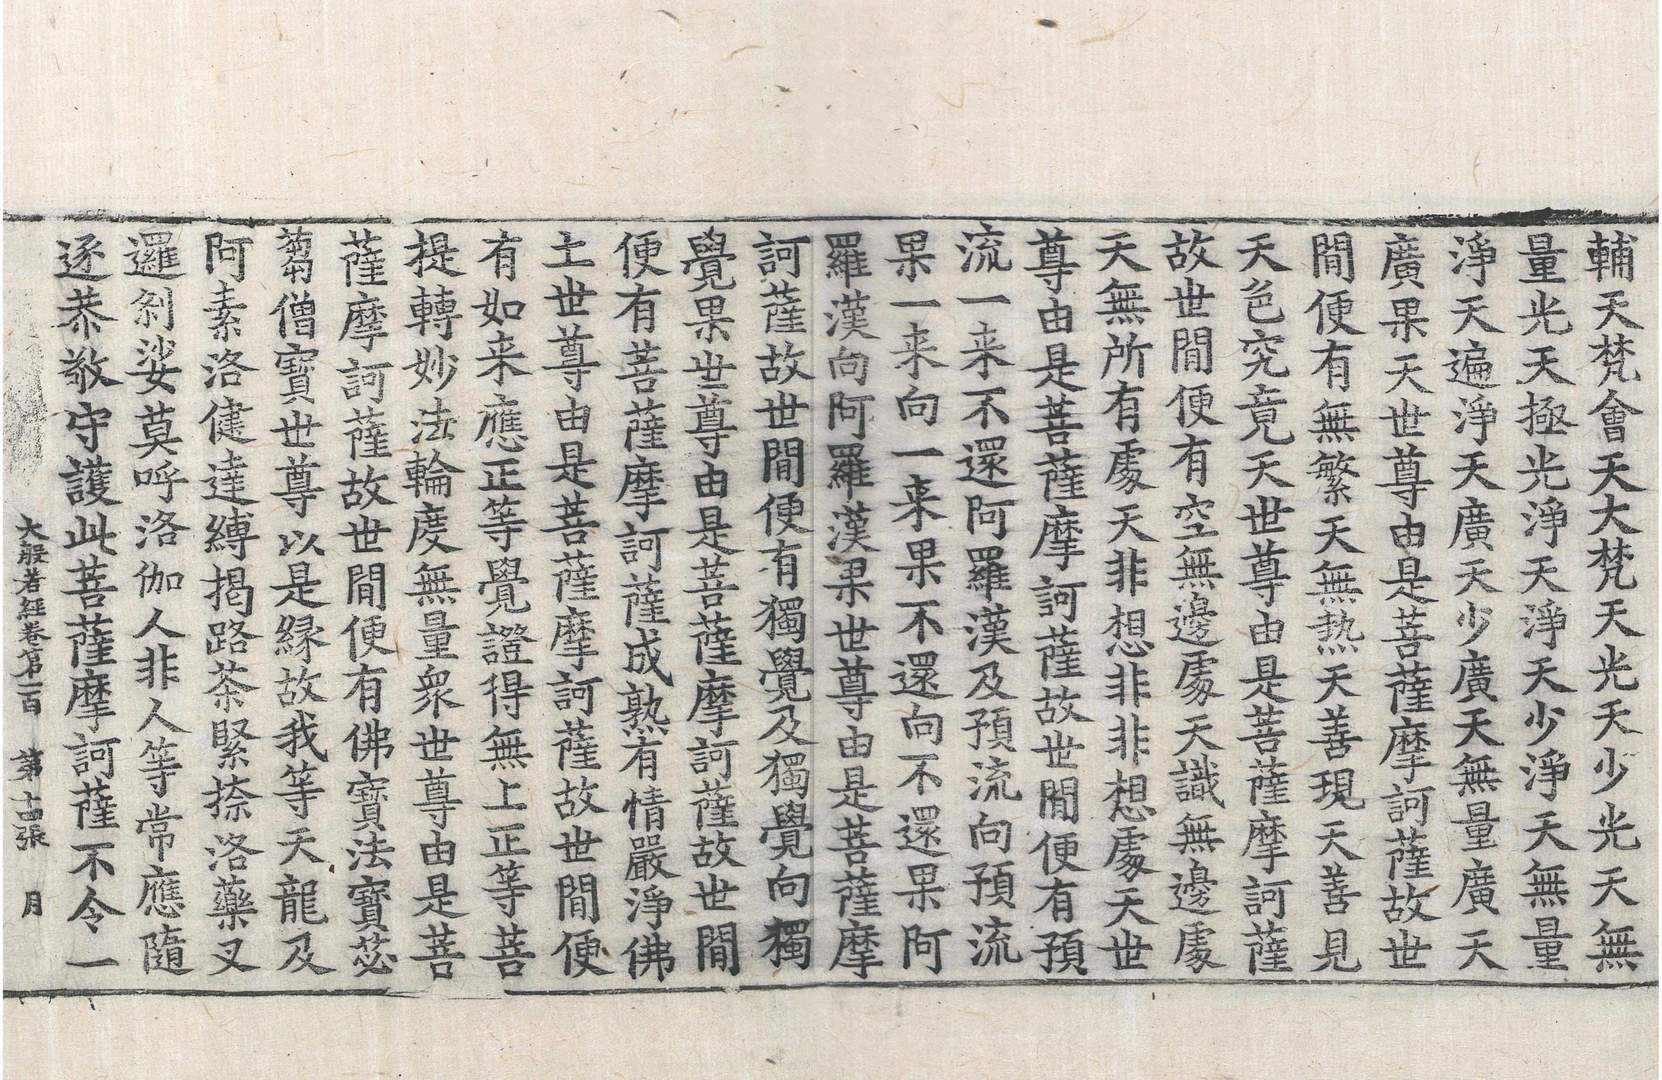 輔天梵會天大梵天光天少光天無
量光天極光淨天淨天少淨天無量
淨天遍淨天廣天少廣天無量廣天
廣果天世尊由是菩薩摩訶薩故世
間便有無繁天無熱天善現天善見
天色究竟天世尊由是菩薩摩訶薩
故世間便有空無邊處天識無邊處
天無所有處天非想非非想處天世
尊由是菩薩摩訶薩故世間便有預
流一来不還阿羅漢及預流向預流
果一来向一来果不還向不還果阿
羅漢向阿羅漢果世尊由是菩薩摩
訶薩故世間便有獨覺及獨覺向獨
覺果世尊由是菩薩摩訶薩故世間
便有菩薩摩訶薩成熟有情嚴淨佛
土世尊由是菩薩摩訶薩故世間便
有如来應正等覺證得無上正等菩
提轉妙法輪度無量衆世尊由是菩
薩摩訶薩故世間便有佛寶法寶苾
蒭僧寶世尊以是縁故我等天龍及
阿素洛健達縛揭路荼緊捺洛藥叉
邏刹娑莫呼洛伽人非人等常應隨
逐恭敬守護此菩薩摩訶薩不令一
大般若經卷第一百 第十四張 月